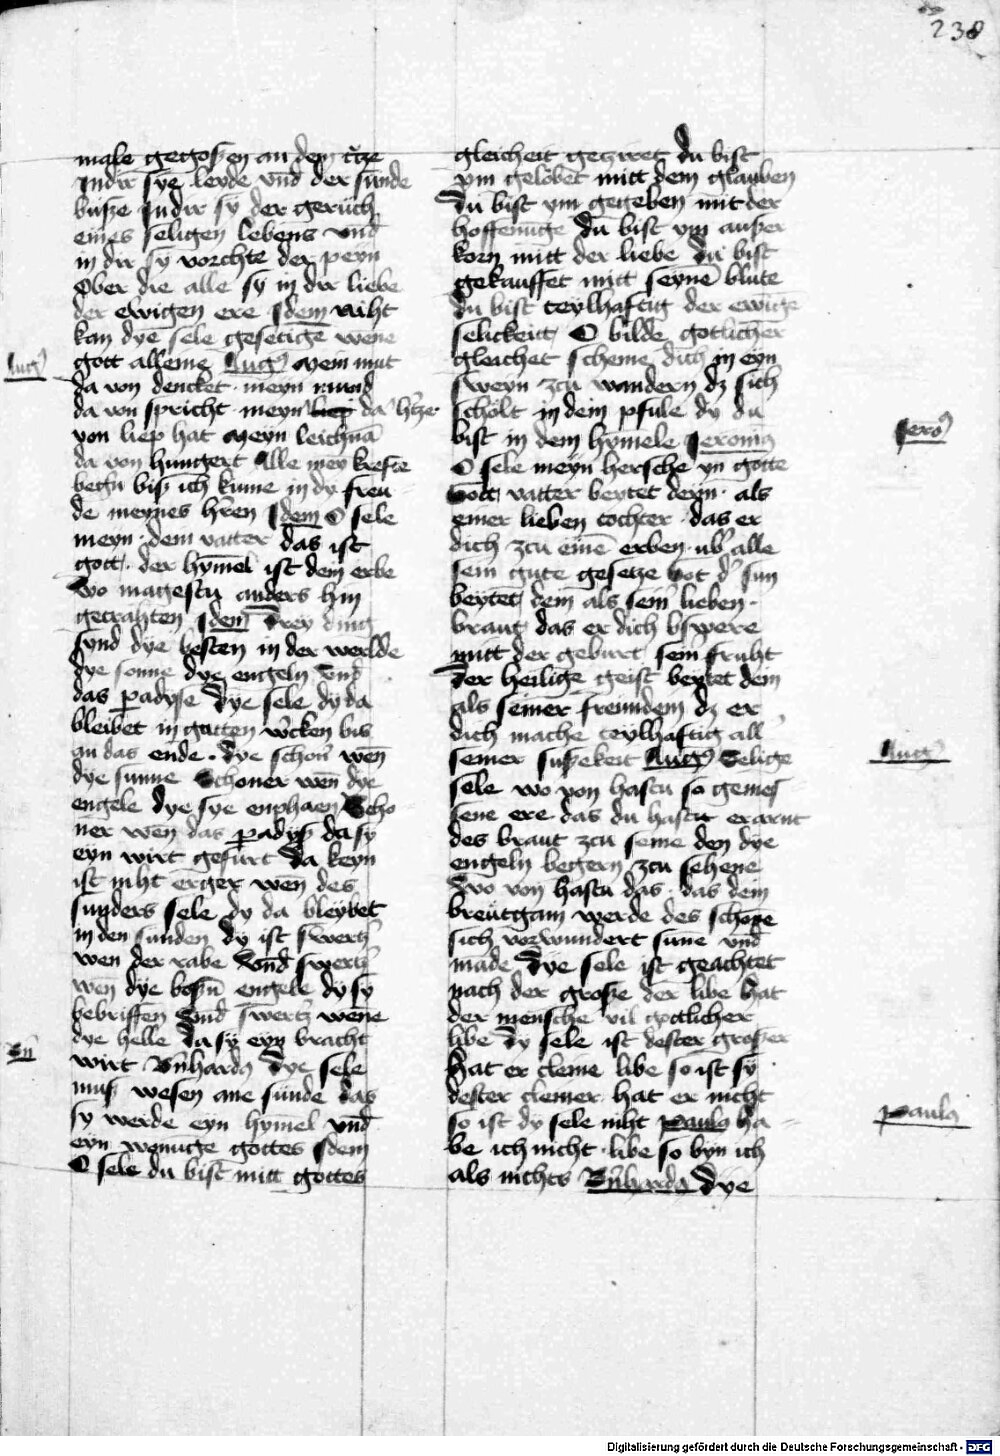 238
male gegoßen an dem crũze
In dir sye leyde vnd der sunde
buße In dir sy der geruch
eines seligen lebens vnd
in dir sy vorchte der peyn
Ober die alle sy in dir liebe
der ewigen ere Idem niht
kan dye sele gesetigẽ wene
gott alleine Augꝰ Mein mut
da von dencket · meyn mund
da von spricht · meyn liep da h'tze
von liep hat Meyn leichnã
da von hungert Alle mey krefte
begñ biß ich kume in dy freu
de meynes hren Idem O sele
meyn · dem vatter das ist
gott · der hymel ist dem erbe
Wo magestu anders hin
getrahten Idem Drey ding
synd dye besten in der werlde
dye sonne dye engeln vnd
das padyse Dye sele dy da
bleibet in gutten w'cken bis
an das ende · dye schoñ wen
dye sunne Schoner wen dye
engele dye sye enphaen Scho
ner wen das padyß da sy
eyn wirt gefurt Da keyn
ist niht erger wen des
sunders sele dy da bleybet
in den sunden dy ist swertz'
wen der rabe Vnd swertz'
wen dye boßñ engele dy sy
bebriffen Vnd swertz' wene
dye helle da sy eyn bracht
wirt Bñhardꝰ Dye sele
muß wesen ane sunde das
sy werde eyn hymel vnd
eyn wonuge gottes Idem
O sele du bist mitt gottes
Augꝰ
Bñ
gleicheit geziret du bist
ym gelobet mitt dem glauben
Du bist ym gegeben mit der
hoffenuge du bist ym außer
korn mitt der liebe du bist
gekauffet mitt seynẽ blute
du bist teylhaftig der ewige
selickeit O bilde gotlicher
gleichet scheme dich in eyn
sweyn zcu wandern dz sich
scholt in dein pfule dy du
bist in dem hymele Jeronimꝰ
O sele meyn hersche yn gotte
Gott vatter beytet deyn · als
einer lieben tochter · das er
dich zcu einẽ erben · ub' alle
sein gute gesetze Got d' sun
beytet dein als seiñ lieben ·
braut das er dich bswere
mitt der geburt sein fruht
Der heilige geist beytet dem
als seiner freundem dz er
dich mache teylhaftig all'
seiner sußekeit Augꝰ Selige
sele wo von hastu so gemes
sene ere das du hastu erarnt
des braut zcu seine den dye
engeln begern zcu sehene
Wo von hastu das · das dein
breutgam werde des schone
sich vorwundert sune vnd
made Dye sele ist geachtet
nach der große der libe hat
der mensche vil gottlicher
libe dy sele ist dester großer
Hat er cleine libe so ist sy
dester cleiner hat er nicht
so ist dy sele niht Paulꝰ ha
be ich nicht · libe so byn ich
als nichts Bñhardꝰ Dye
Jeroꝰ
Augꝰ
Paulꝰ
Digitalisierung gefördert durch die Deutsche Forschungsgemeinschaft - DFG